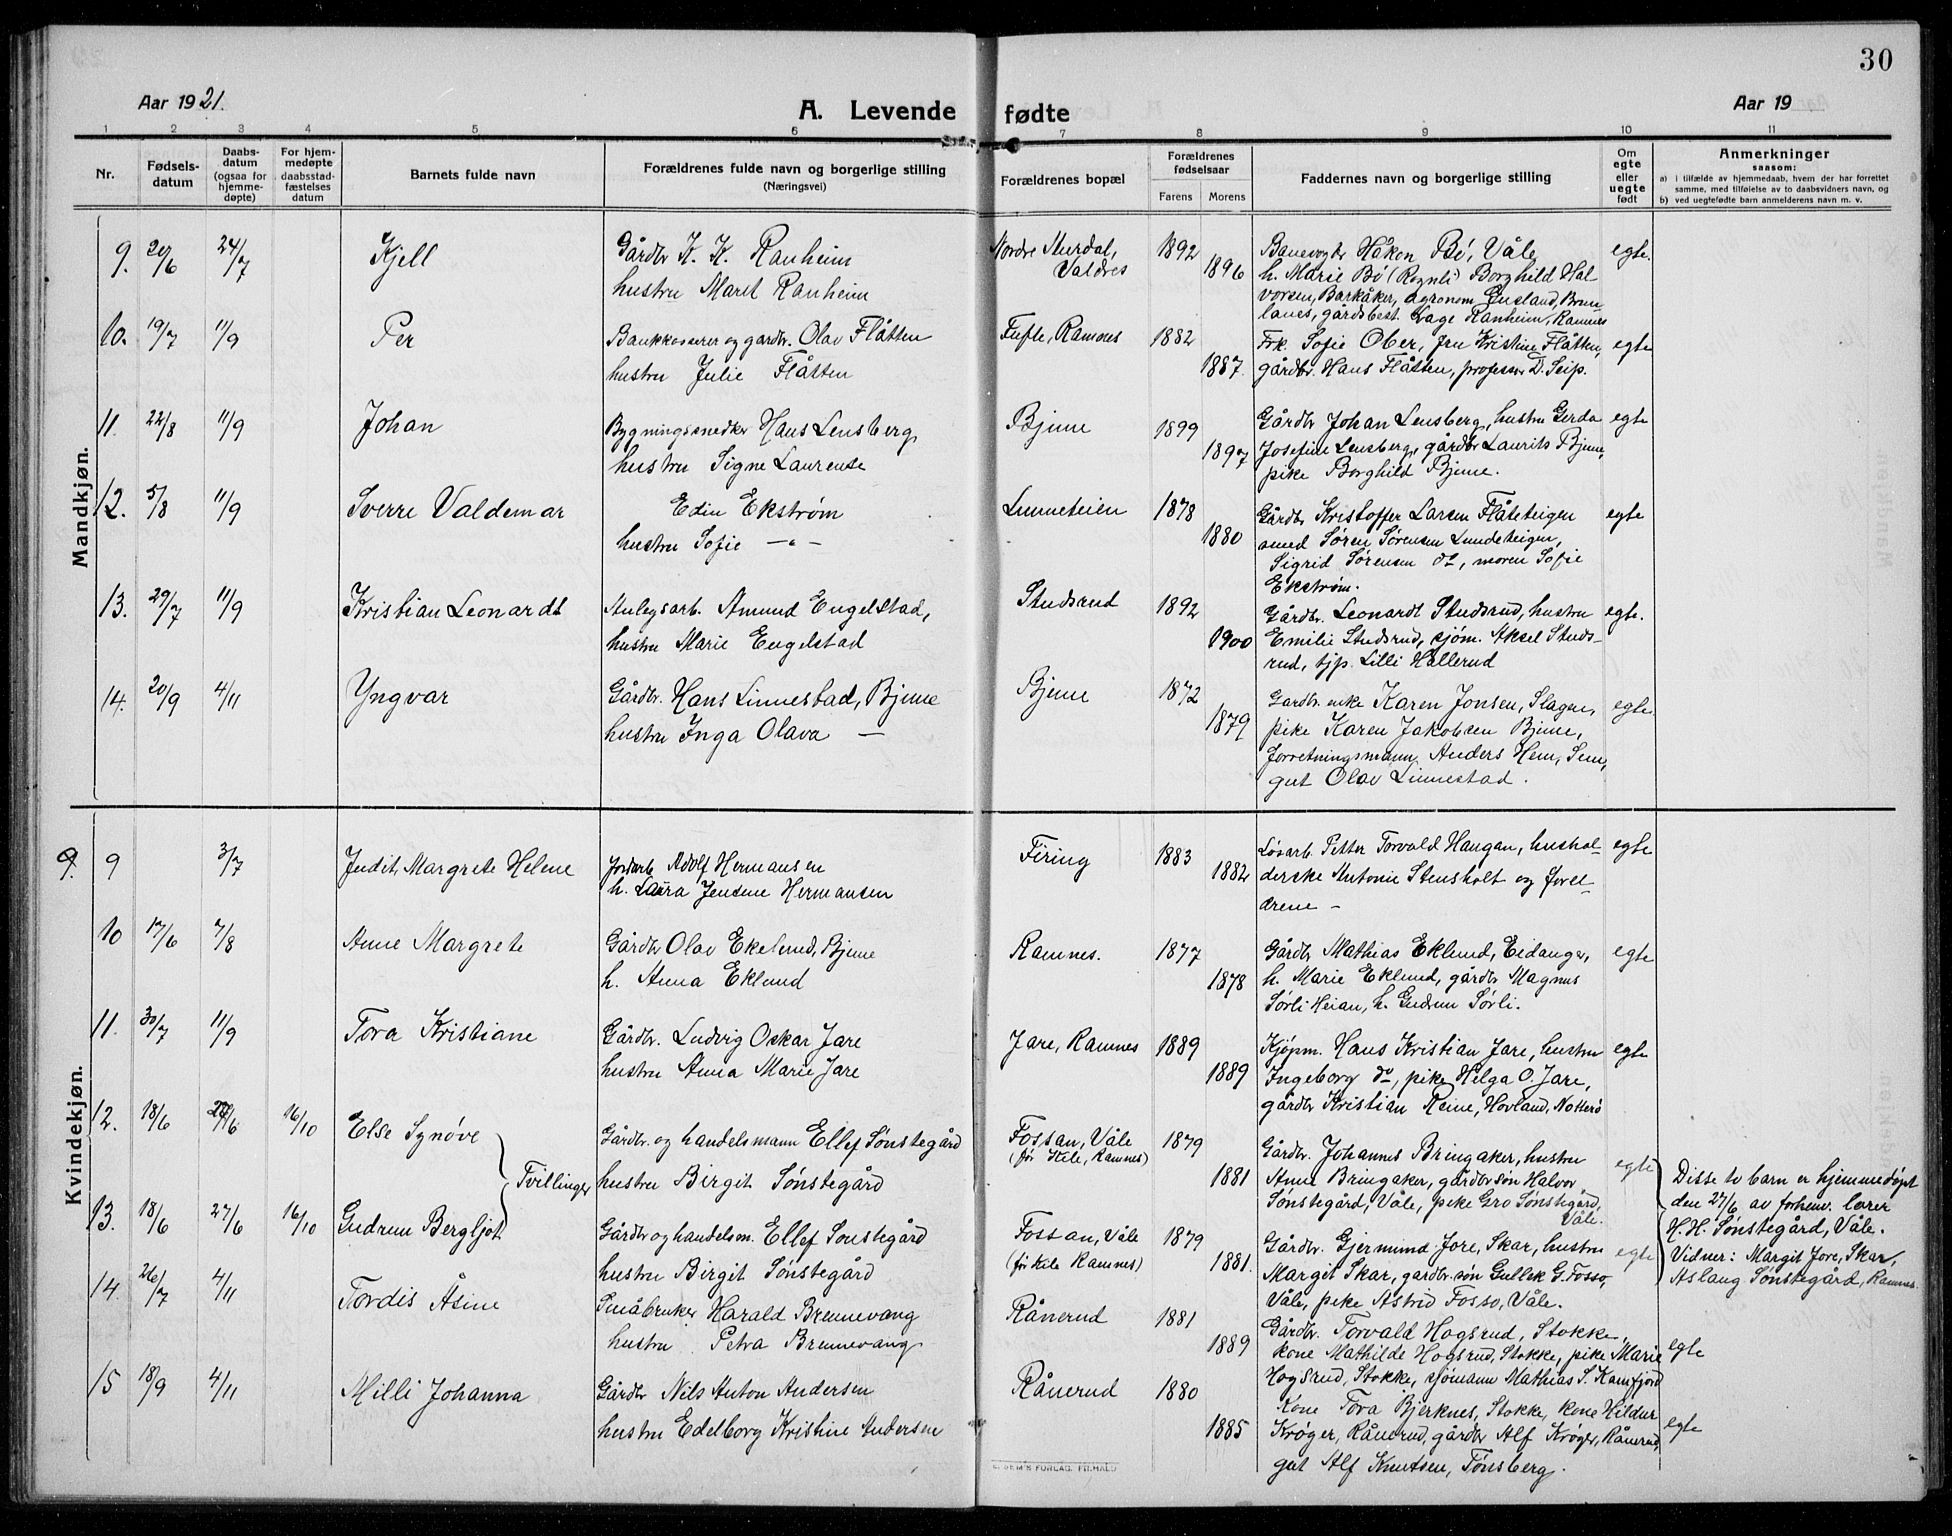 30
Aar 1921.
A. Levende fødte
Aar 19
1 2 3 4 5 6 7 8 9 10 11
Nr.
Fødsels-
datum
Daabs-
datum
(ogsaa for
hjemme-
døpte)
For hjem-
medøpte
daabsstad-
fæstelses
datum
Barnets fulde navn
Forældrenes fulde navn og borgerlige stilling
(Næringsvei)
Forældrenes bopæl
Forældrenes
fødselsaar
Farens Morens
Faddernes navn og borgerlige stilling
Om
egte
eller
uegte
født
Anmerkninger
saasom:
a) i tilfælde av hjemmedaab, hvem der har forrettet
samme, med tilføielse av to daabsvidners navn, og
b) ved uegtefødte barn anmelderens navn m. v.
Mandkjøn.
9. 20/6 24/7 Kjell
Gårdbr K. K. Ranheim
hustru Marit Ranheim
Nordre Aurdal,
Valdres
1892
1896
Banevogter Håkon Bö, Våle
h. Marie Bö (Rognli) Borghild Hal-
vorsen, Barkåker, agronom Gusland, Brun-
lanes, gårdsbest. Lage Ranheim, Ramnes
egte.
10. 19/7 11/9 Per
Bankkasserer og gardbr. Olav Flåtten
hustru Julie Flåtten
Fufle, Ramnes
1882
1887.
Frk. Sofie Ober, fru Kristine Flåtten,
gårdbr. Hans Flåtten, professor D. Seip.
egte
11. 22/8 11/9 Johan
Bygningssnedker Hans Lensberg,
hustru Signe Laurense
Bjune
1899
1897
Gårdbr Johan Lensberg, hustru Gerda
Josefine Lensberg, gårdbr Laurits Bjune,
pike Borghild Bjune.
egte
12. 5/8 11/9 Sverre Valdemar
Edin Ekstrøm
hustru Sofie —"—
Lunneteien
1878
1880
Gårdbr Kristoffer Larsen Flåteteigen
smed Søren Sørensen Lundeteigen,
Sigrid Sørensen do, moren Sofie
Ekstrøm.
egte
13. 29/7 11/9 Kristian Leonardt
Anlegsarb. Amund Engelstad,
hustru Marie Engelstad
Studsrud
1892
1900
Gårdbr. Leonardt Studsrud, hustru
Emilie Studsrud, sjøm. Aksel Studs-
rud, tjp. Lilli Hallerud
egte.
14. 20/9 4/11 Yngvar
Gårdbr. Hans Linnestad, Bjune
hustru Inga Olava —
Bjune
1872
1879
Gardbr. enke Karen Jonsen, Slagen,
pike Karen Jakobsen Bjune,
forretningsmann Anders Hem, Sem,
gut Olav Linnestad.
egte.
Kvindekjøn.
9. 9 3/7 Judit Margrete Helene
Jordarb Adolf Hermansen
h. Laura Jensine Hermansen
Firing
1883
1882
Løsarb. Petter Torvald Haugan, hushol-
derske Antonie Stensholt og forel-
drene –
egte
10 17/6 7/8 Anne Margrete
Gårdbr Olav Ekelund, Bjune
h. Anna Eklund
Ramnes.
1877
1878
Gårdbr Mathias Eklund, Eidanger,
h. Marie Eklund, gårdbr Magnus
Sørli Heian, h. Gudrun Sørli.
egte
11. 30/7 11/9 Tora Kristiane
Gårdbr. Ludvig Oskar Jare
hustru Anna Marie Jare
Jare, Ramnes
1889
1889
Kjøpm. Hans Kristian Jare, hustru
Ingeborg do, pike Helga O. Jare,
gårdbr Kristian Reine, Hovland, Nøtterø
egte
12. 18/6 27/6 16/10 Else Synøve
Tvillinger
Gårdbr. og handelsmann Ellef Sønstegård
hustru Birgit Sønstegård
Fossan, Våle
(før Kile, Ramnes)
1879
1881
Gårdbr. Johannes Bringaker, hustru
Anne Bringaker, gårdbr søn Halvor
Sønstegård, Våle, pike Gro Sønstegård,
Våle.
egte
Disse to barn er hjemmedøpt
den 27/6 av forhenv. lærer
H. H. Sønstegård, Våle.
Vidner: Margit Jore, Skar,
Aslaug Sønstegård, Ramnes.
13. 18/6 27/6 16/10 Gudrun Bergljot
Gårdbr og handelsm. Ellef Sønstegård
hustru Birgit Sønstegård
Fossan, Våle
(før Kile Ramnes)
1879
1881.
Gårdbr. Gjermund Jore, Skar, hustru
Margit Skar, gardbr. søn Gullek G. Fosso,
Våle, pike Astrid Fosso, Våle.
egte
14. 26/7 4/11 Tordis Åsine
Småbruker Harald Brennevang
hustru Petra Brennevang
Rånerud
1881
1889
Gårdbr. Torvald Hogsrud, Stokke,
kone Mathilde Hogsrud, Stokke, pike Marie
Hogsrud, Stokke, sjømann Mathias S. Kamfjord
egte
15 18/9 4/11 Milli Johanna
Gårdbr Nils Anton Andersen
hustru Edelborg Kristine Andersen
Rånerud
1880
1885
Kone Tora Bjerknes, Stokke, kone Hildur
Krøger, Rånerud, gårdbr Alf Krøger, Rånerud,
gut Alf Knutsen, Tønsberg.
egte
SEM'S FORLAG, FR.HALD